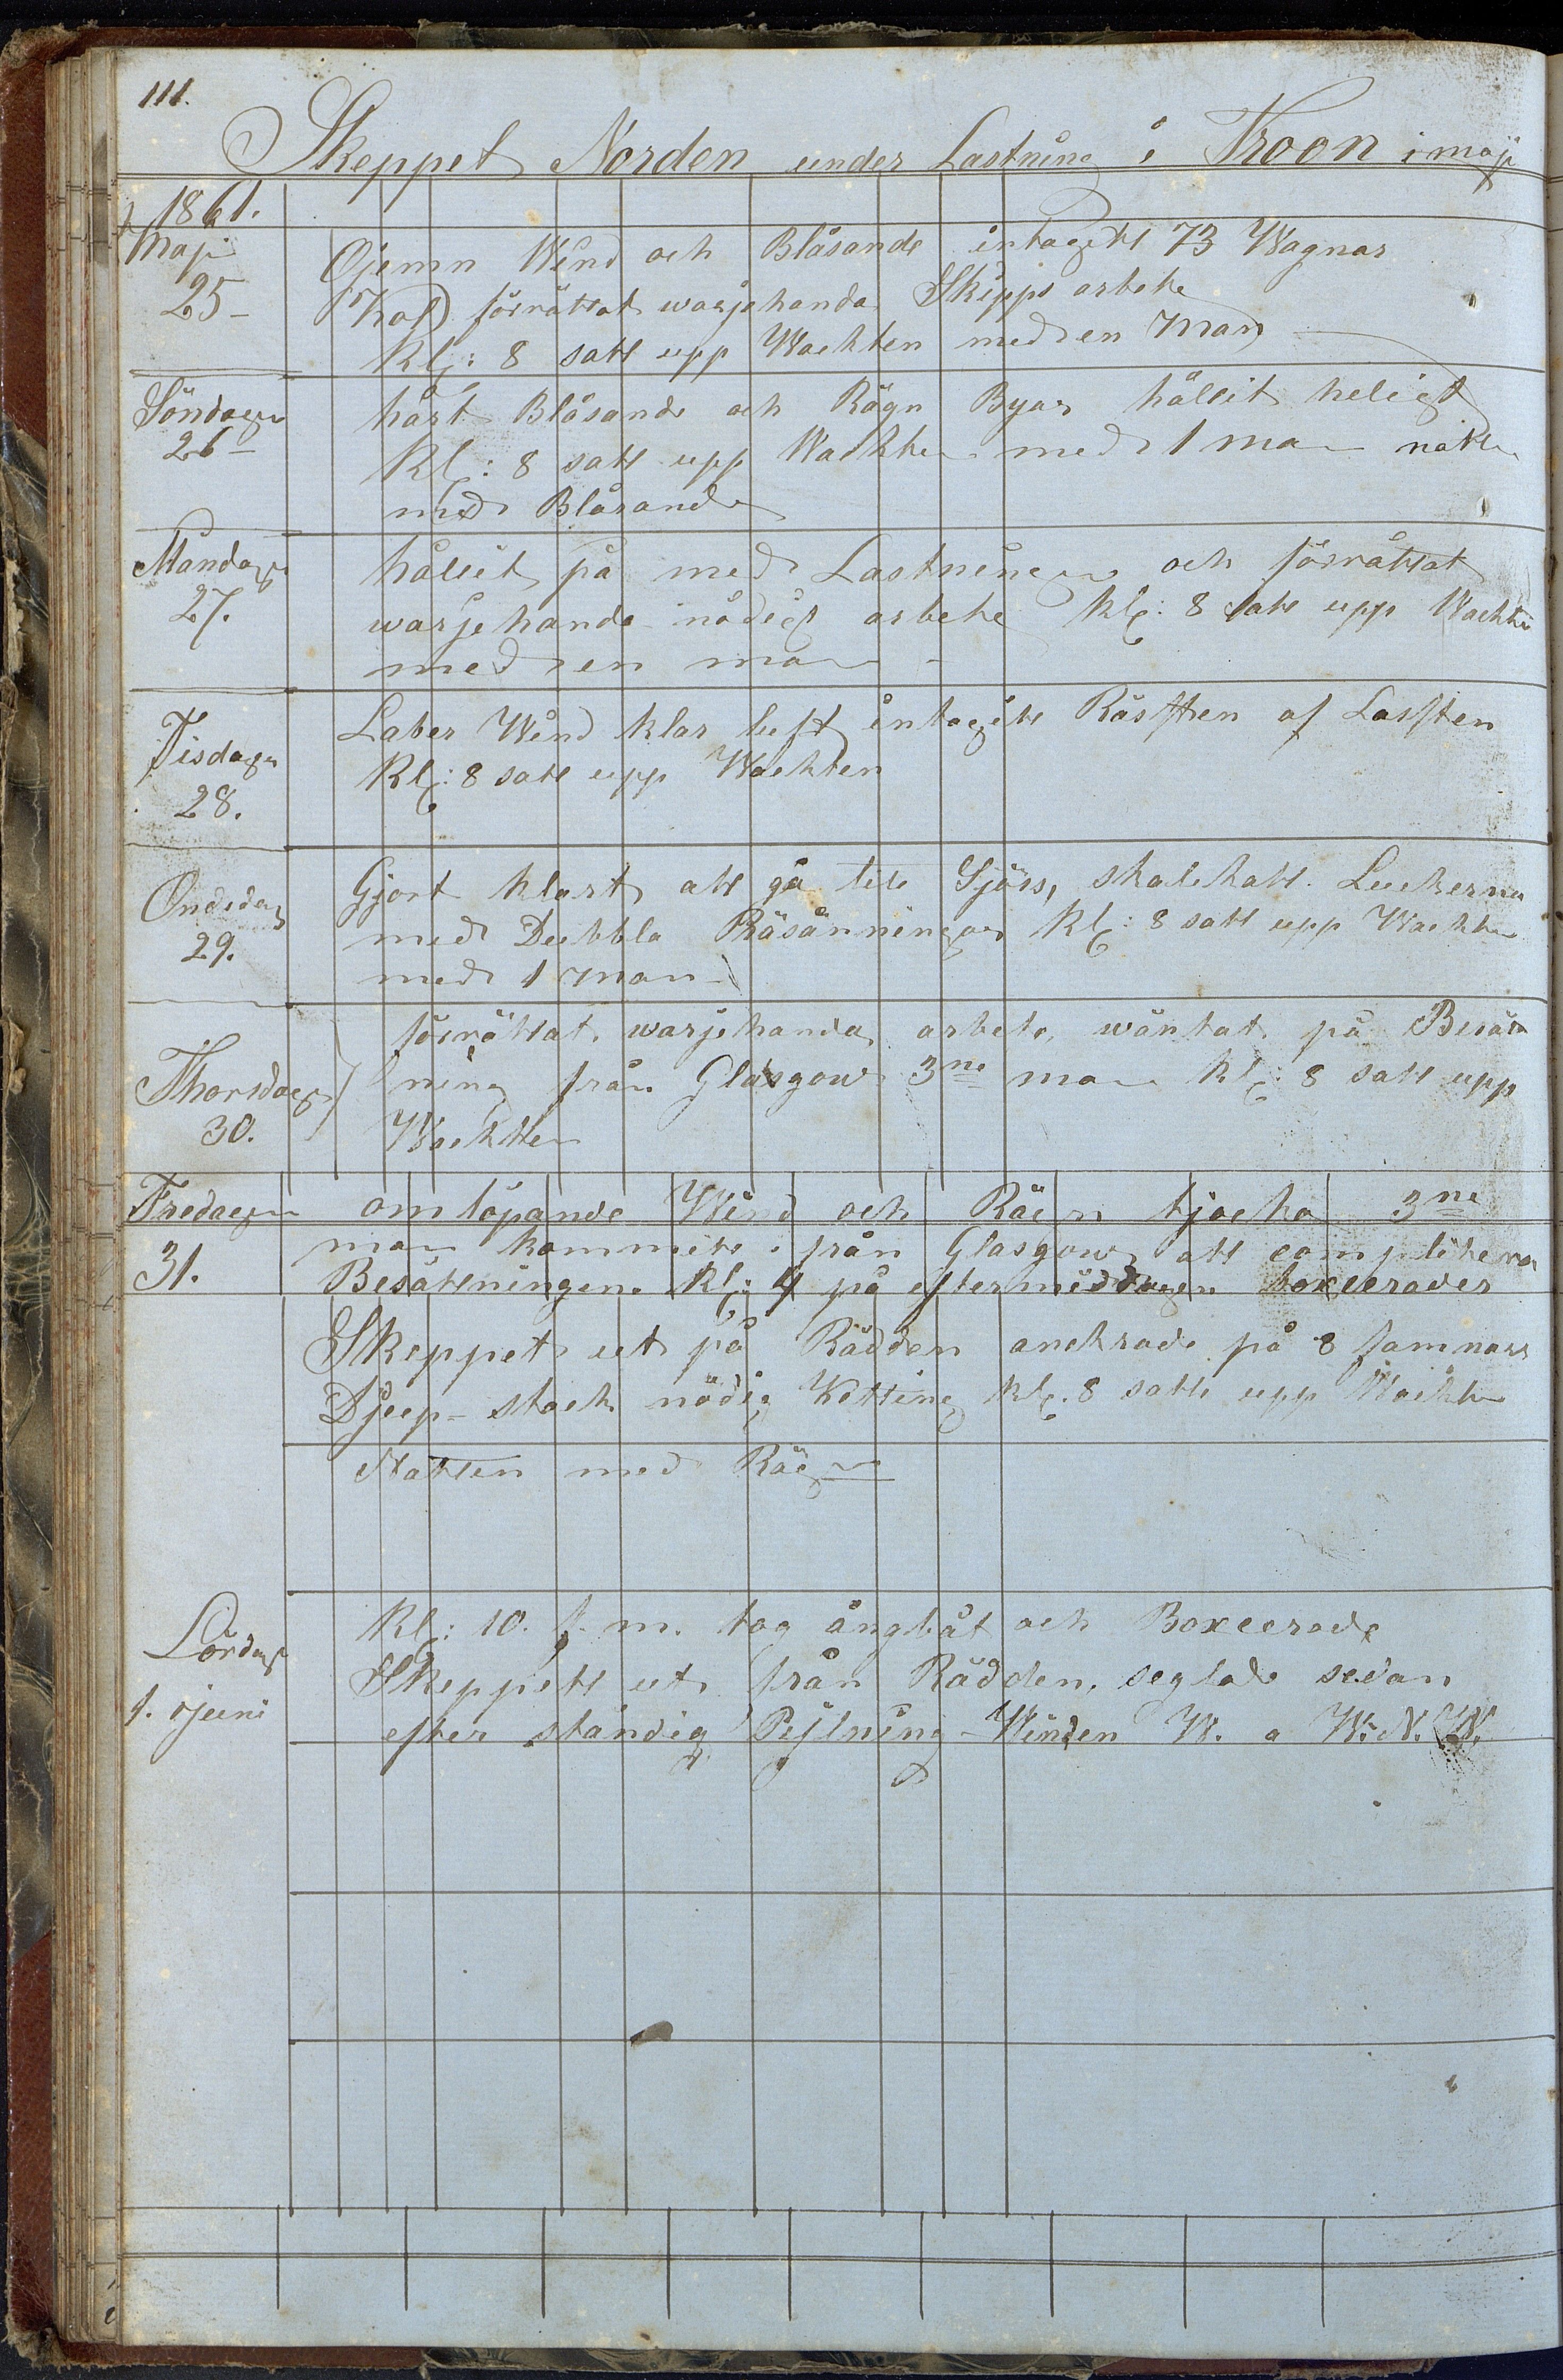 111.
Skeppet Norden under Lastning i Troon i maji
1861.
Maji
25 -
Ojemn Wind och Blåsande intagitt 73 Wagnar
Kol förrättat warjehanda Skepps arbete
Kl: 8 satt upp Wachten med en Man
Söndagen
26 -
hårt Blåsande och Rägn Byar hållit heligt
Kl: 8 satt upp Wachten med 1 man natten
med Blåsande
Måndagen
27.
hållit på med Lastningen och förrättat
warjehanda nödigt arbete Kl: 8 satt upp Wachten
med en man -
Tisdagen
28.
Laber Wind klar luft intagitt Räsften af Lasften
Kl: 8 satt upp Wachten
Onsdag
29.
Gjort klart att gå till Sjöss, skalkatt Luckerna
med Dubbla Präsänningar Kl: 8 satt upp Wachten
med 1 man -
Thorsdag
30.
förrättat warjehanda arbete, wäntat på Besätt
ning från Glasgow 3ne man Kl: 8 satt upp
Wachten
Fredagen
31.
omlöpande Wind och Rägn tjocka 3ne
man kommitt ifrån Glasgow att complitera
Besättningen. Kl: 4 på eftermiddagen boxerades
Skeppet ut på Rädden anckrade på 8 famnars
Djup - stack nödig Ketting Kl. 8 satt upp Wachten
Natten med Rägn
Lördag
1. juni
Kl: 10. f. m. tog ångbåt och Boxcerade
Skeppett ut från Rädden, seglade sedan
efter ständig Pejlning - Winden W. a W. N. W.